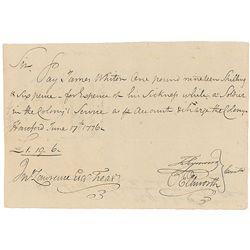 Sir Pay James Whiton One pound nineteen Shilling
& Six pence – for Expence of his Sickness while a Soldier
in the Colony's Service as pr Account & Charge the Colony
Hartford June 17th 1776
£1.19.6
Jno Lawrence Esqr Treasr
T Seymour
O Ellsworth
Comtee